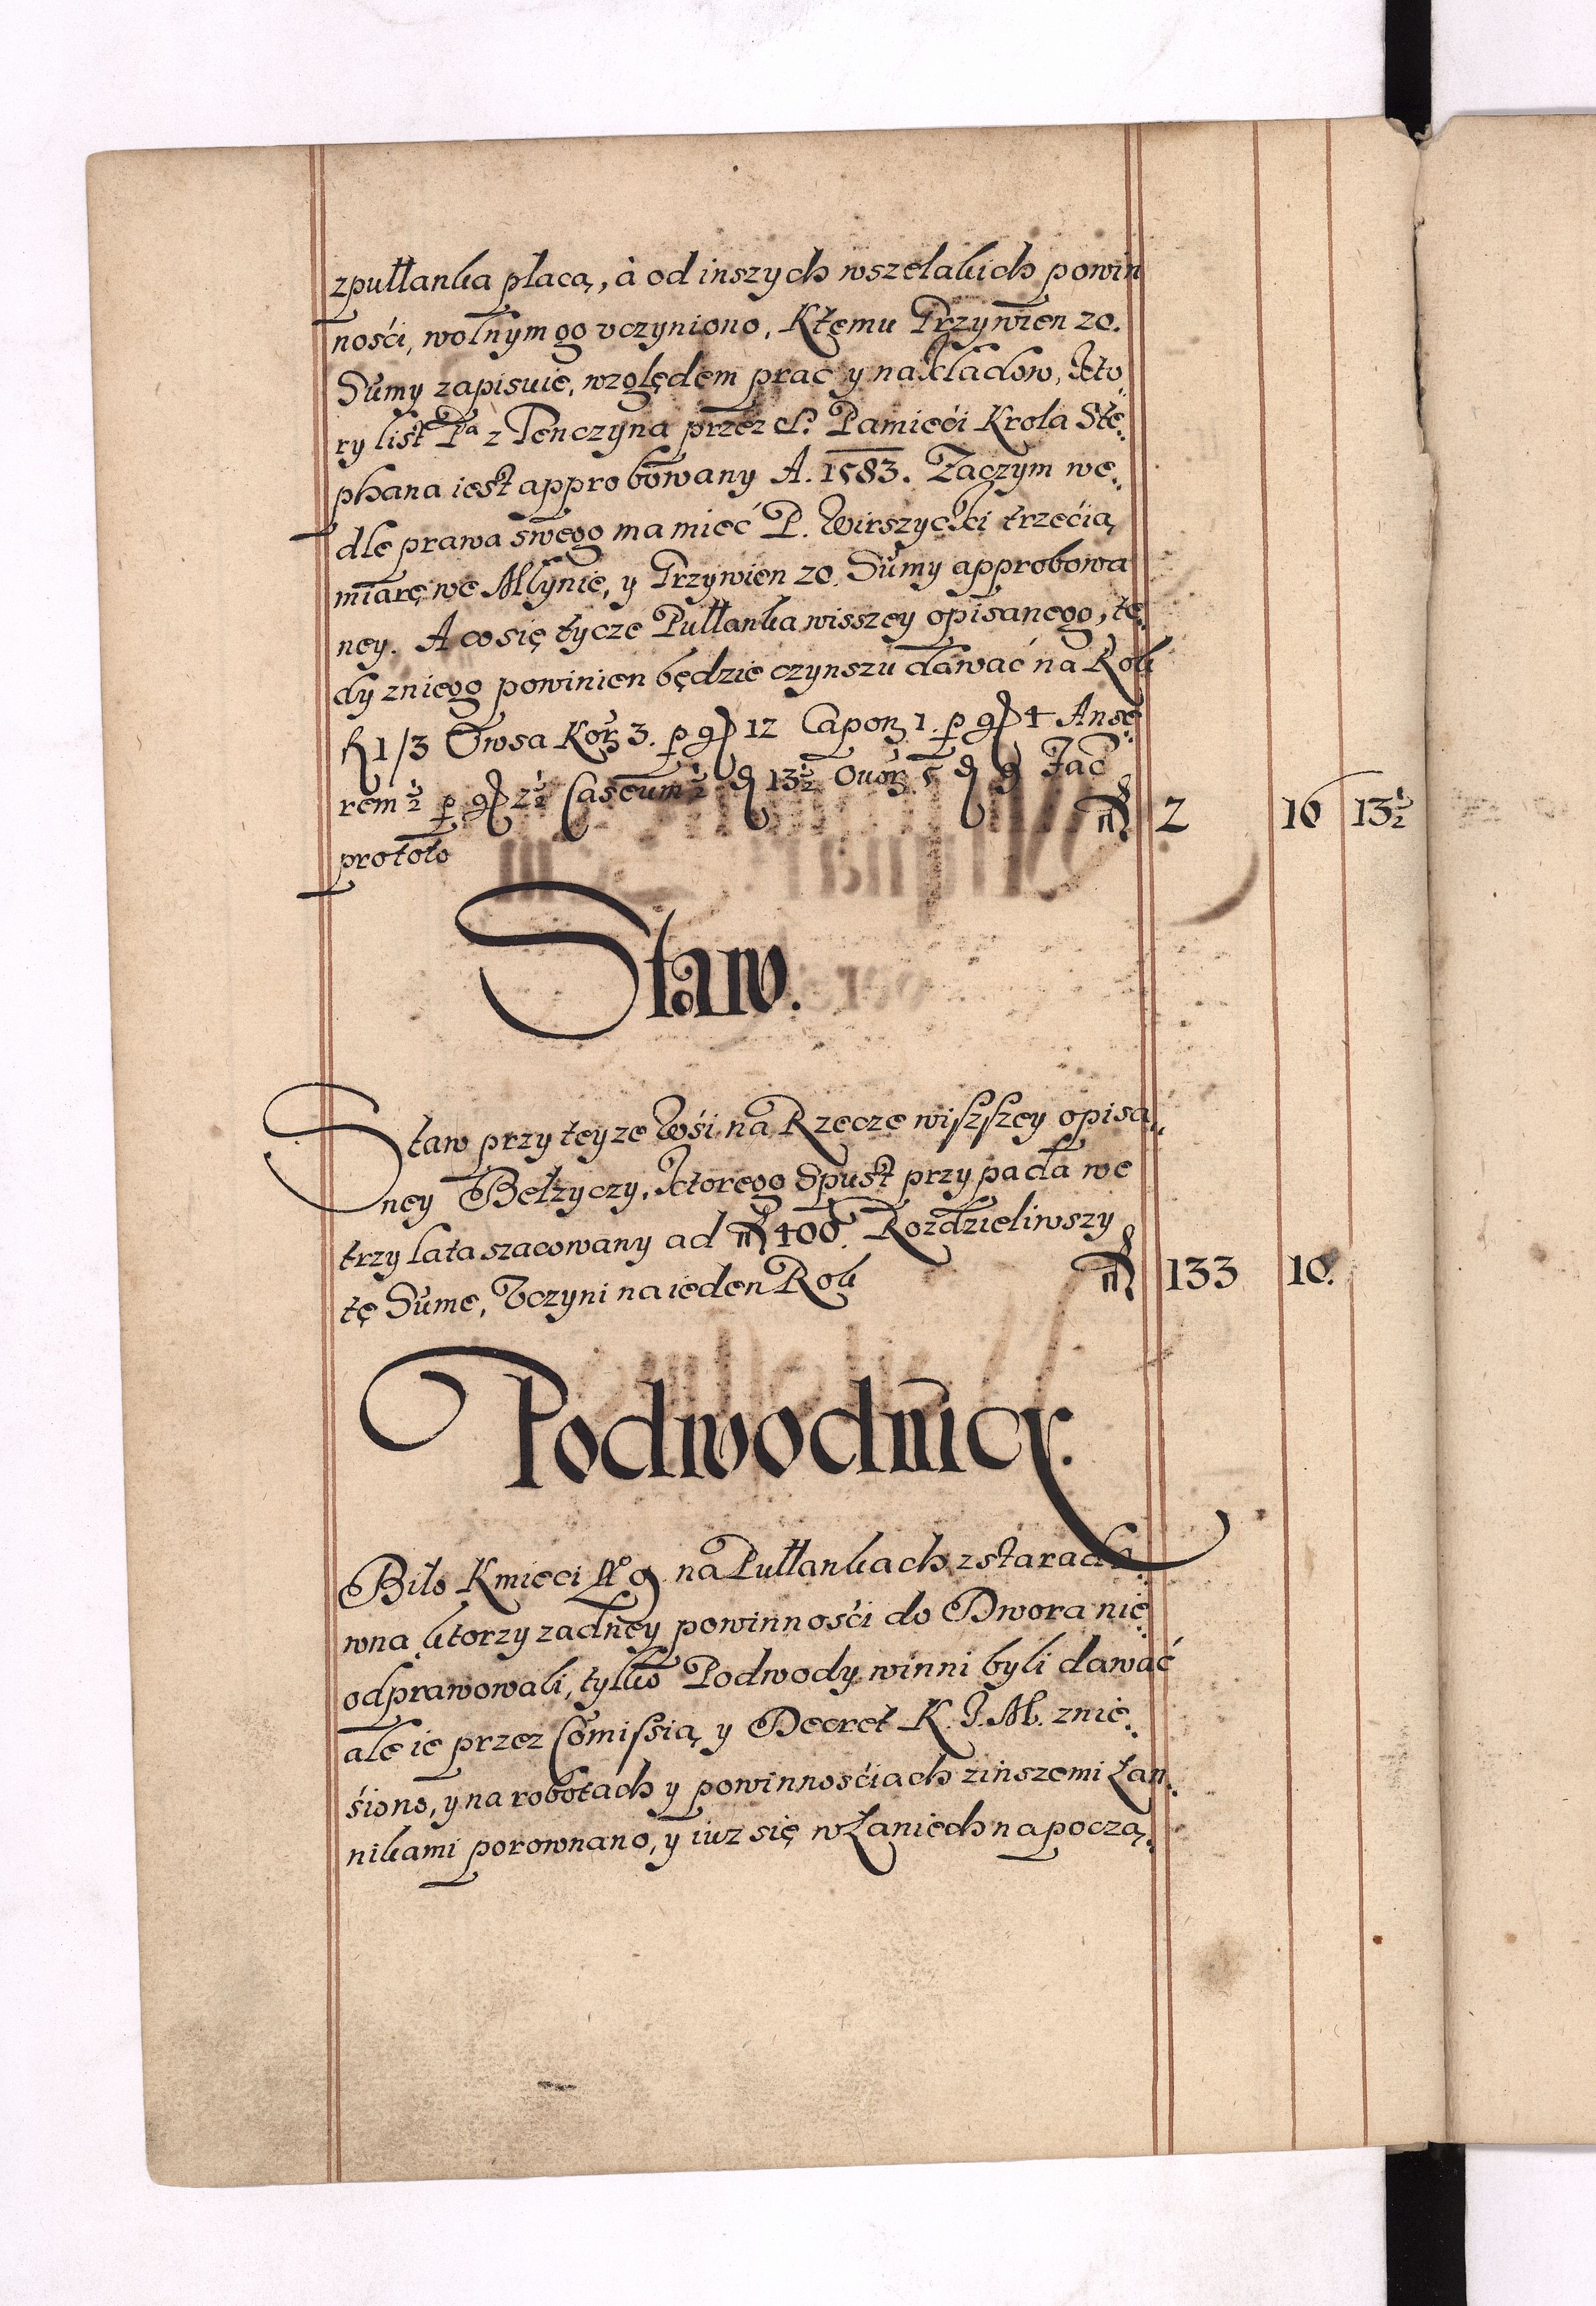 zpułłanka płacą, à od inszych wszelakich powin
ności, wolnym go vczyniono, Ktemu Grzywien 20.
Sumy zapisuie, względem prac y nakładow, kto
ry list Pa z Tenczyna przez S. Pamięći Krola Ste
phana iest approbowany A. 1583. Zaczym we
dle prawa swego ma mieć P. Wirszycki trzećią
miarę we Młynie, y Grzywien 20. Sumy approbowa
ney. A co się tycze Pułłanka wisszey opisanego, te
dy zniego powinien będzie czynszu dawać na Rok
fl 1/3 Owsa Kor 3. p g 12 Capon 1. p g 4 Anse
rem ½ p g 2½ Caseum ½ d 13½ Ouor 5 d 9 Fac
prototo fl 2 16 13½
Staw.
Staw przy teyze Wśi na Rzecze wiszszey opisa
ney Bełzyczy, ktorego Spust przypada we
trzy lata szacowany ad fl 400. Rozdzieliwszy
tę Sume, Vczyni na ieden Rok fl 133 10.
Podwodnicy.
Biło Kmieci No 9 na Pułłankach z starada
wna ktorzy zadney powinnośći do Dwora nie
odprawowali, tylko Podwody winni byli dawać
ale ie przez Comissią y Decret K. J. M. znie
śiono, y na robotach y powinnośćiach zinszemi Łan
nikami porownano, y iuz się w Łaniech na począ